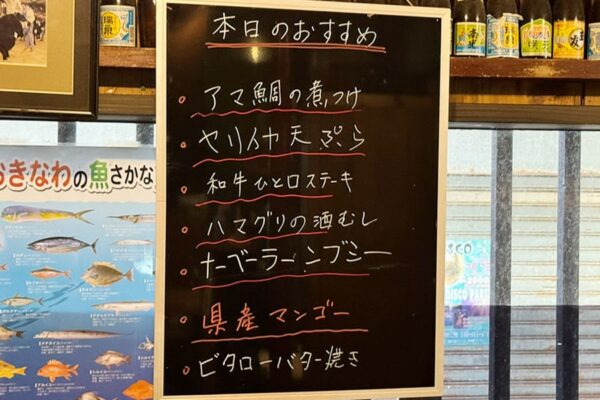 本日のおすすめ
アマ鯛の煮つけ
ヤリイカ天ぷら
和牛ひと口ステーキ
ハマグリの酒むし
ナーベーラーンブシー
県産マンゴー
ビタローバター焼き
おきなわの魚さかな